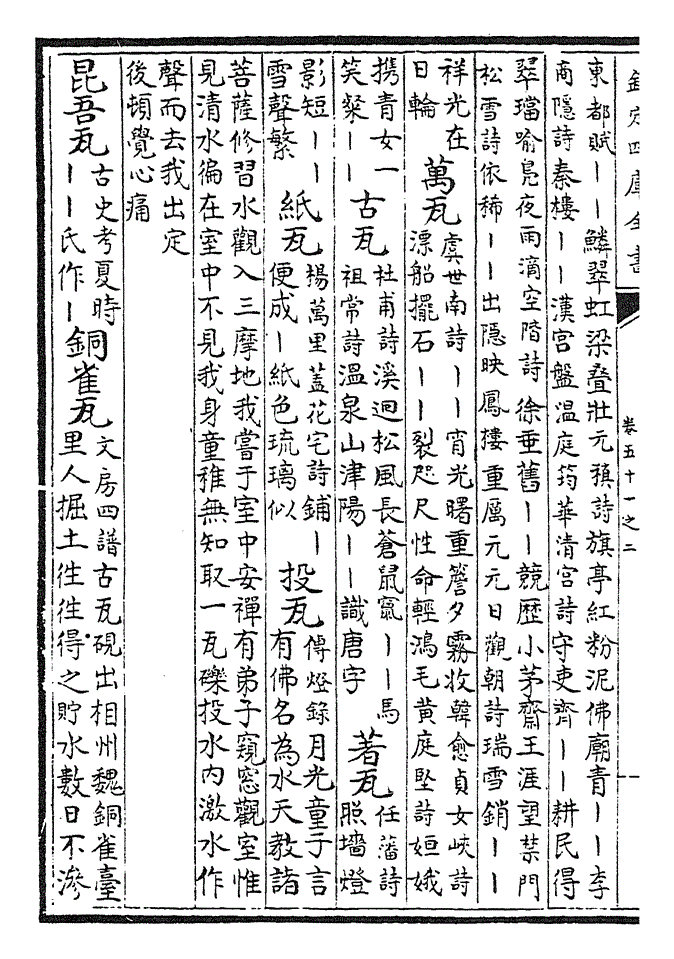 欽定四庫全書
卷五十一之二
一
東都賦——鱗翠虹梁疊壯元稹詩旗亭紅粉泥佛廟青——李
商隱詩秦樓——漢宮盤溫庭筠華清宮詩守吏齊——耕民得
翠璫喻鳧夜雨滴空階詩徐垂舊——競歷小茅齋王涯望禁門
松雪詩依稀——出隱映鳳樓重厲元元日觀朝詩瑞雪銷——
祥光在
日輪
萬瓦
虞世南詩——宵光曙重簷夕霧收韓愈貞女峽詩
漂船擺石——裂咫尺性命輕鴻毛黃庭堅詩姮娥
携青女一
笑粲——
古瓦
杜甫詩溪迴松風長蒼鼠竄——馬
祖常詩溫泉山津陽——識唐字
著瓦
任藩詩
照墻燈
影短——
雪聲繁
紙瓦
楊萬里蓋花宅詩鋪—
便成—紙色琉璃似
投瓦
傳燈錄月光童子言
有佛名為水天教諸
菩薩修習水觀入三摩地我嘗于室中安禪有弟子窺窓觀室惟
見清水徧在室中不見我身童稚無知取一瓦礫投水內激水作
聲而去我出定
後頓覺心痛
昆吾瓦
古史考夏時
——氏作—
銅雀瓦
文房四譜古瓦硯出相州魏銅雀臺
里人掘土往往得之貯水數日不滲